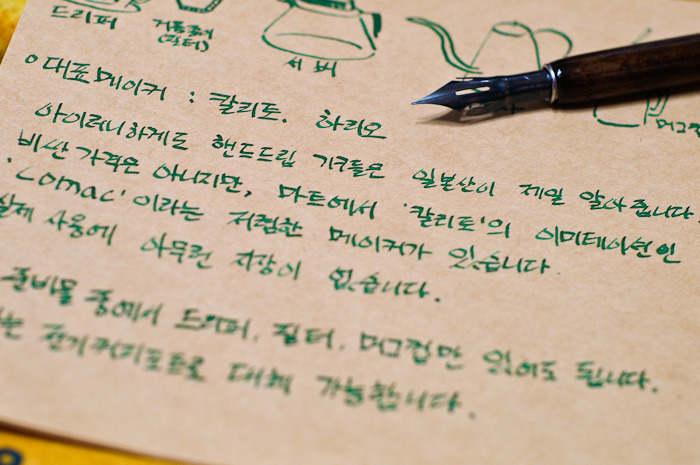 드리퍼 거름종이 서버 머그컵
(필터)
○대표메이커 : 칼리토. 하리오
아이러니하게도 핸드드립 기구들은 일본산이 제일 알아줍니다.
비싼 가격은 아니지만, 마트에서 '칼리토'의 이미테이션인
'Lomac'이라는 저렴한 메이커가 있습니다.
실제 사용에 아무런 지장이 없습니다.
준비물 중에서 드리퍼. 필터. 머그컵만 있어도 됩니다.
는 전기커피포트로 대체 가능합니다.